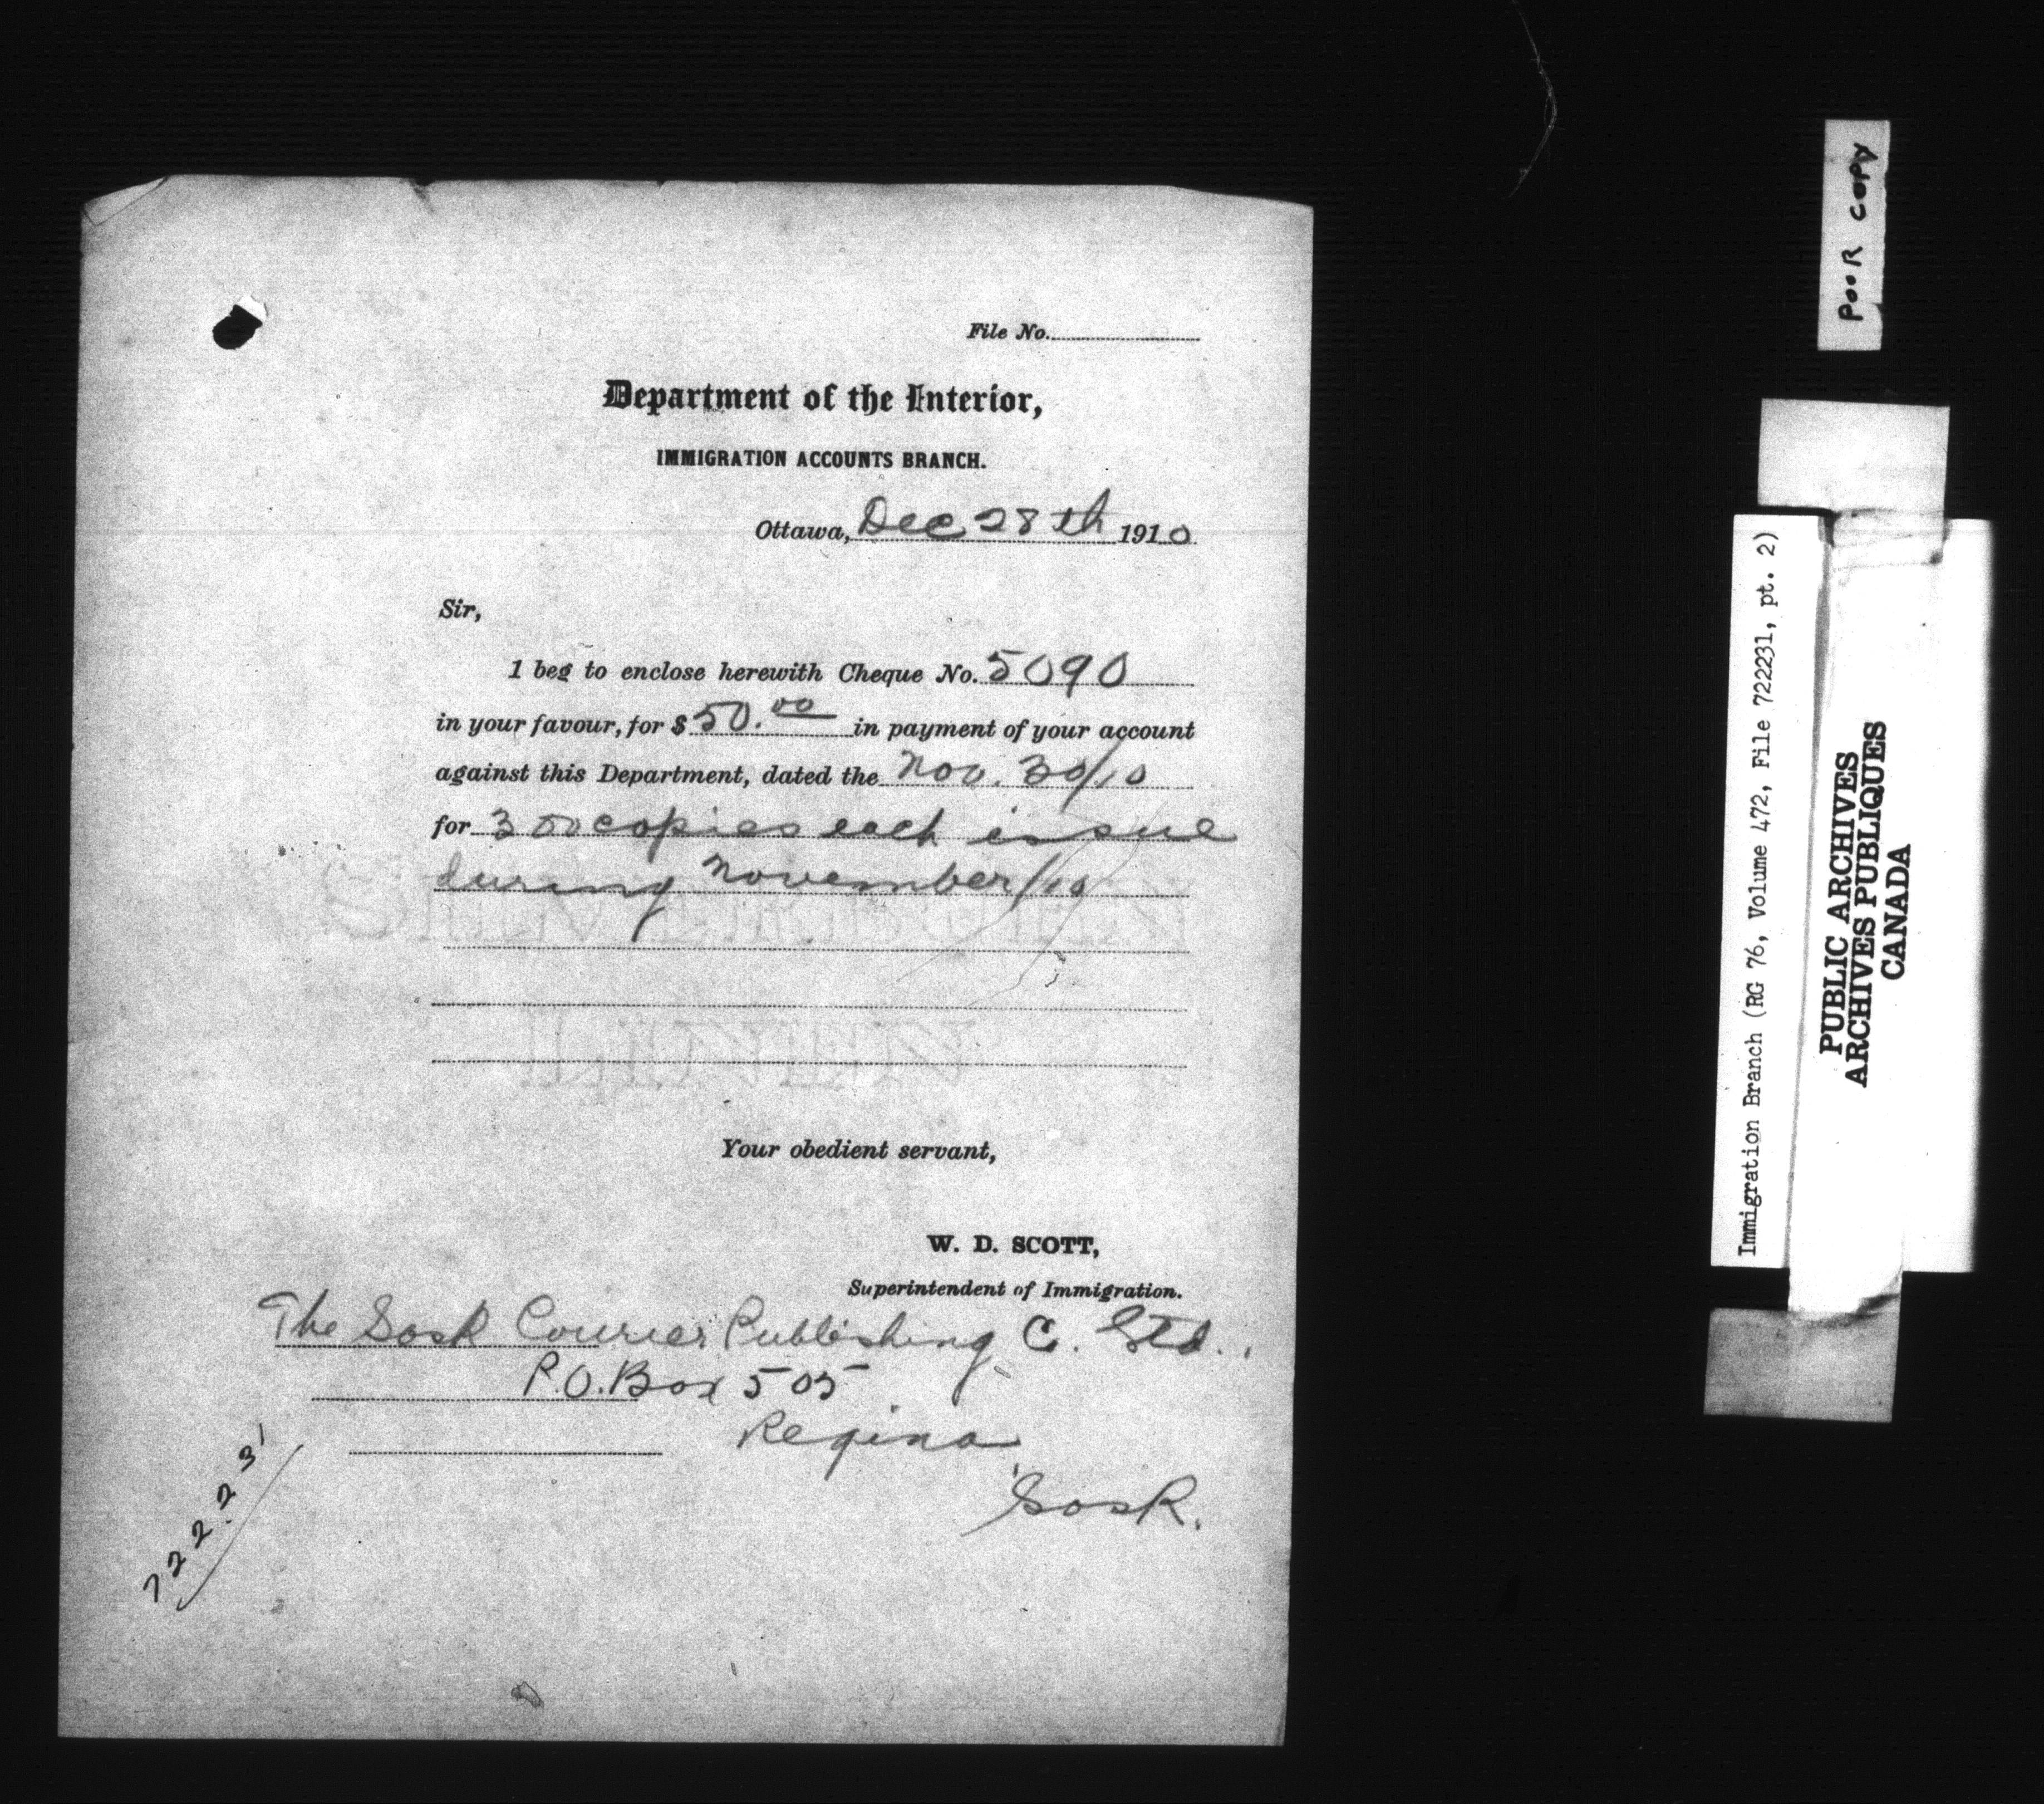 File No.
Department of the Interior,
IMMIGRATION ACCOUNTS BRANCH.
Ottawa, Dec 28th 1910
Sir,
I beg to enclose herewith Cheque No. 5090
in your favour, for $ 50.00 in payment of your account
against this Department, dated the Nov. 30/10
for 300 copies each issue
during November/10
Your obedient servant,
W. D. SCOTT,
Superintendent of Immigration.
The Sask Courier Publishing C. Ltd.,
P.O. Box 505
Regina
Sask.
722231
POOR COPY
Immigration Branch (RG 76, Volume 472, File 722231, pt. 2)
PUBLIC ARCHIVES
ARCHIVES PUBLIQUES
CANADA